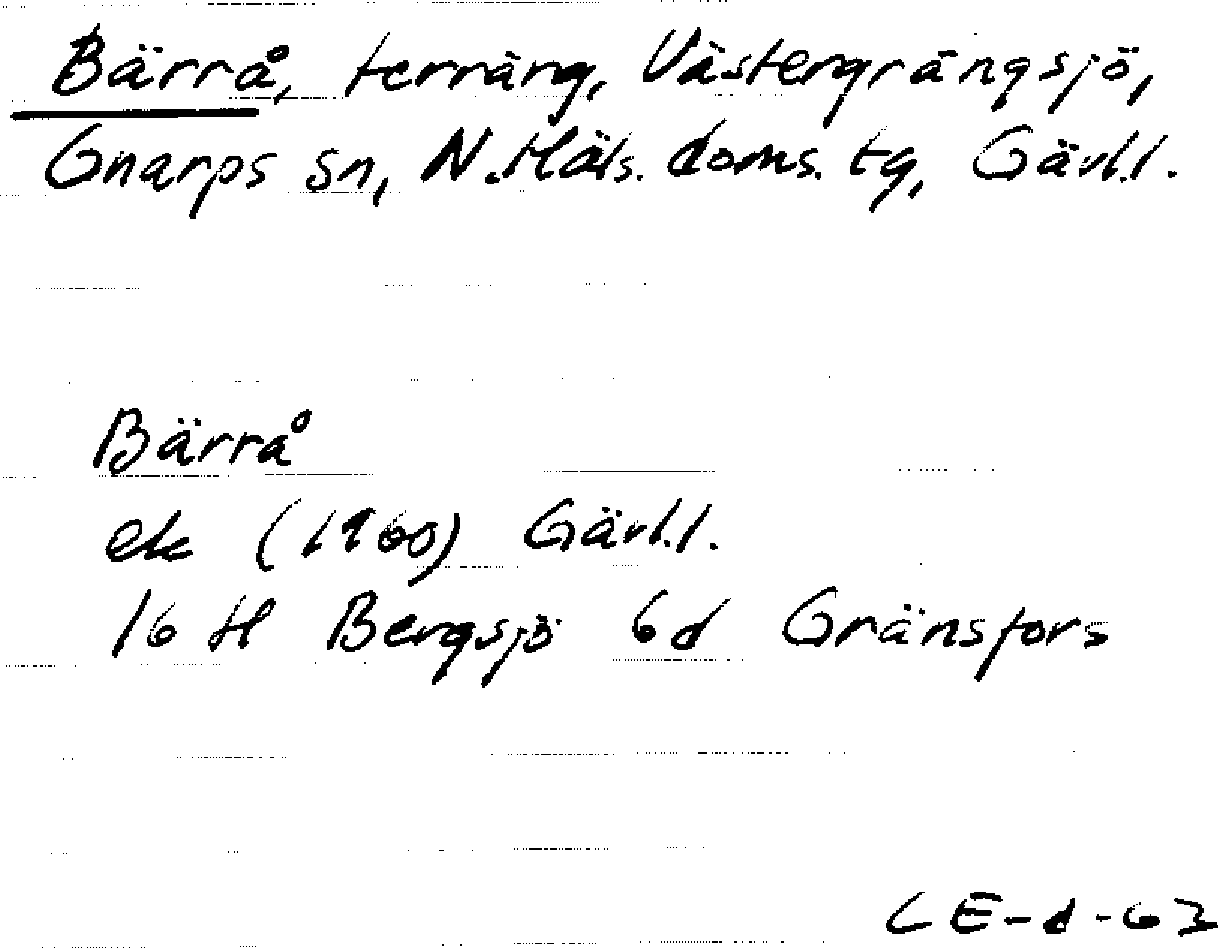 Bärrå, terräng, Västergrängsjö,
Gnarps sn, N.Häls. doms. tg, Gävl.l.
Bärrå
ek (1960) Gävl.l.
16 H Bergsjö 6d Gränsfors
6E-d-63